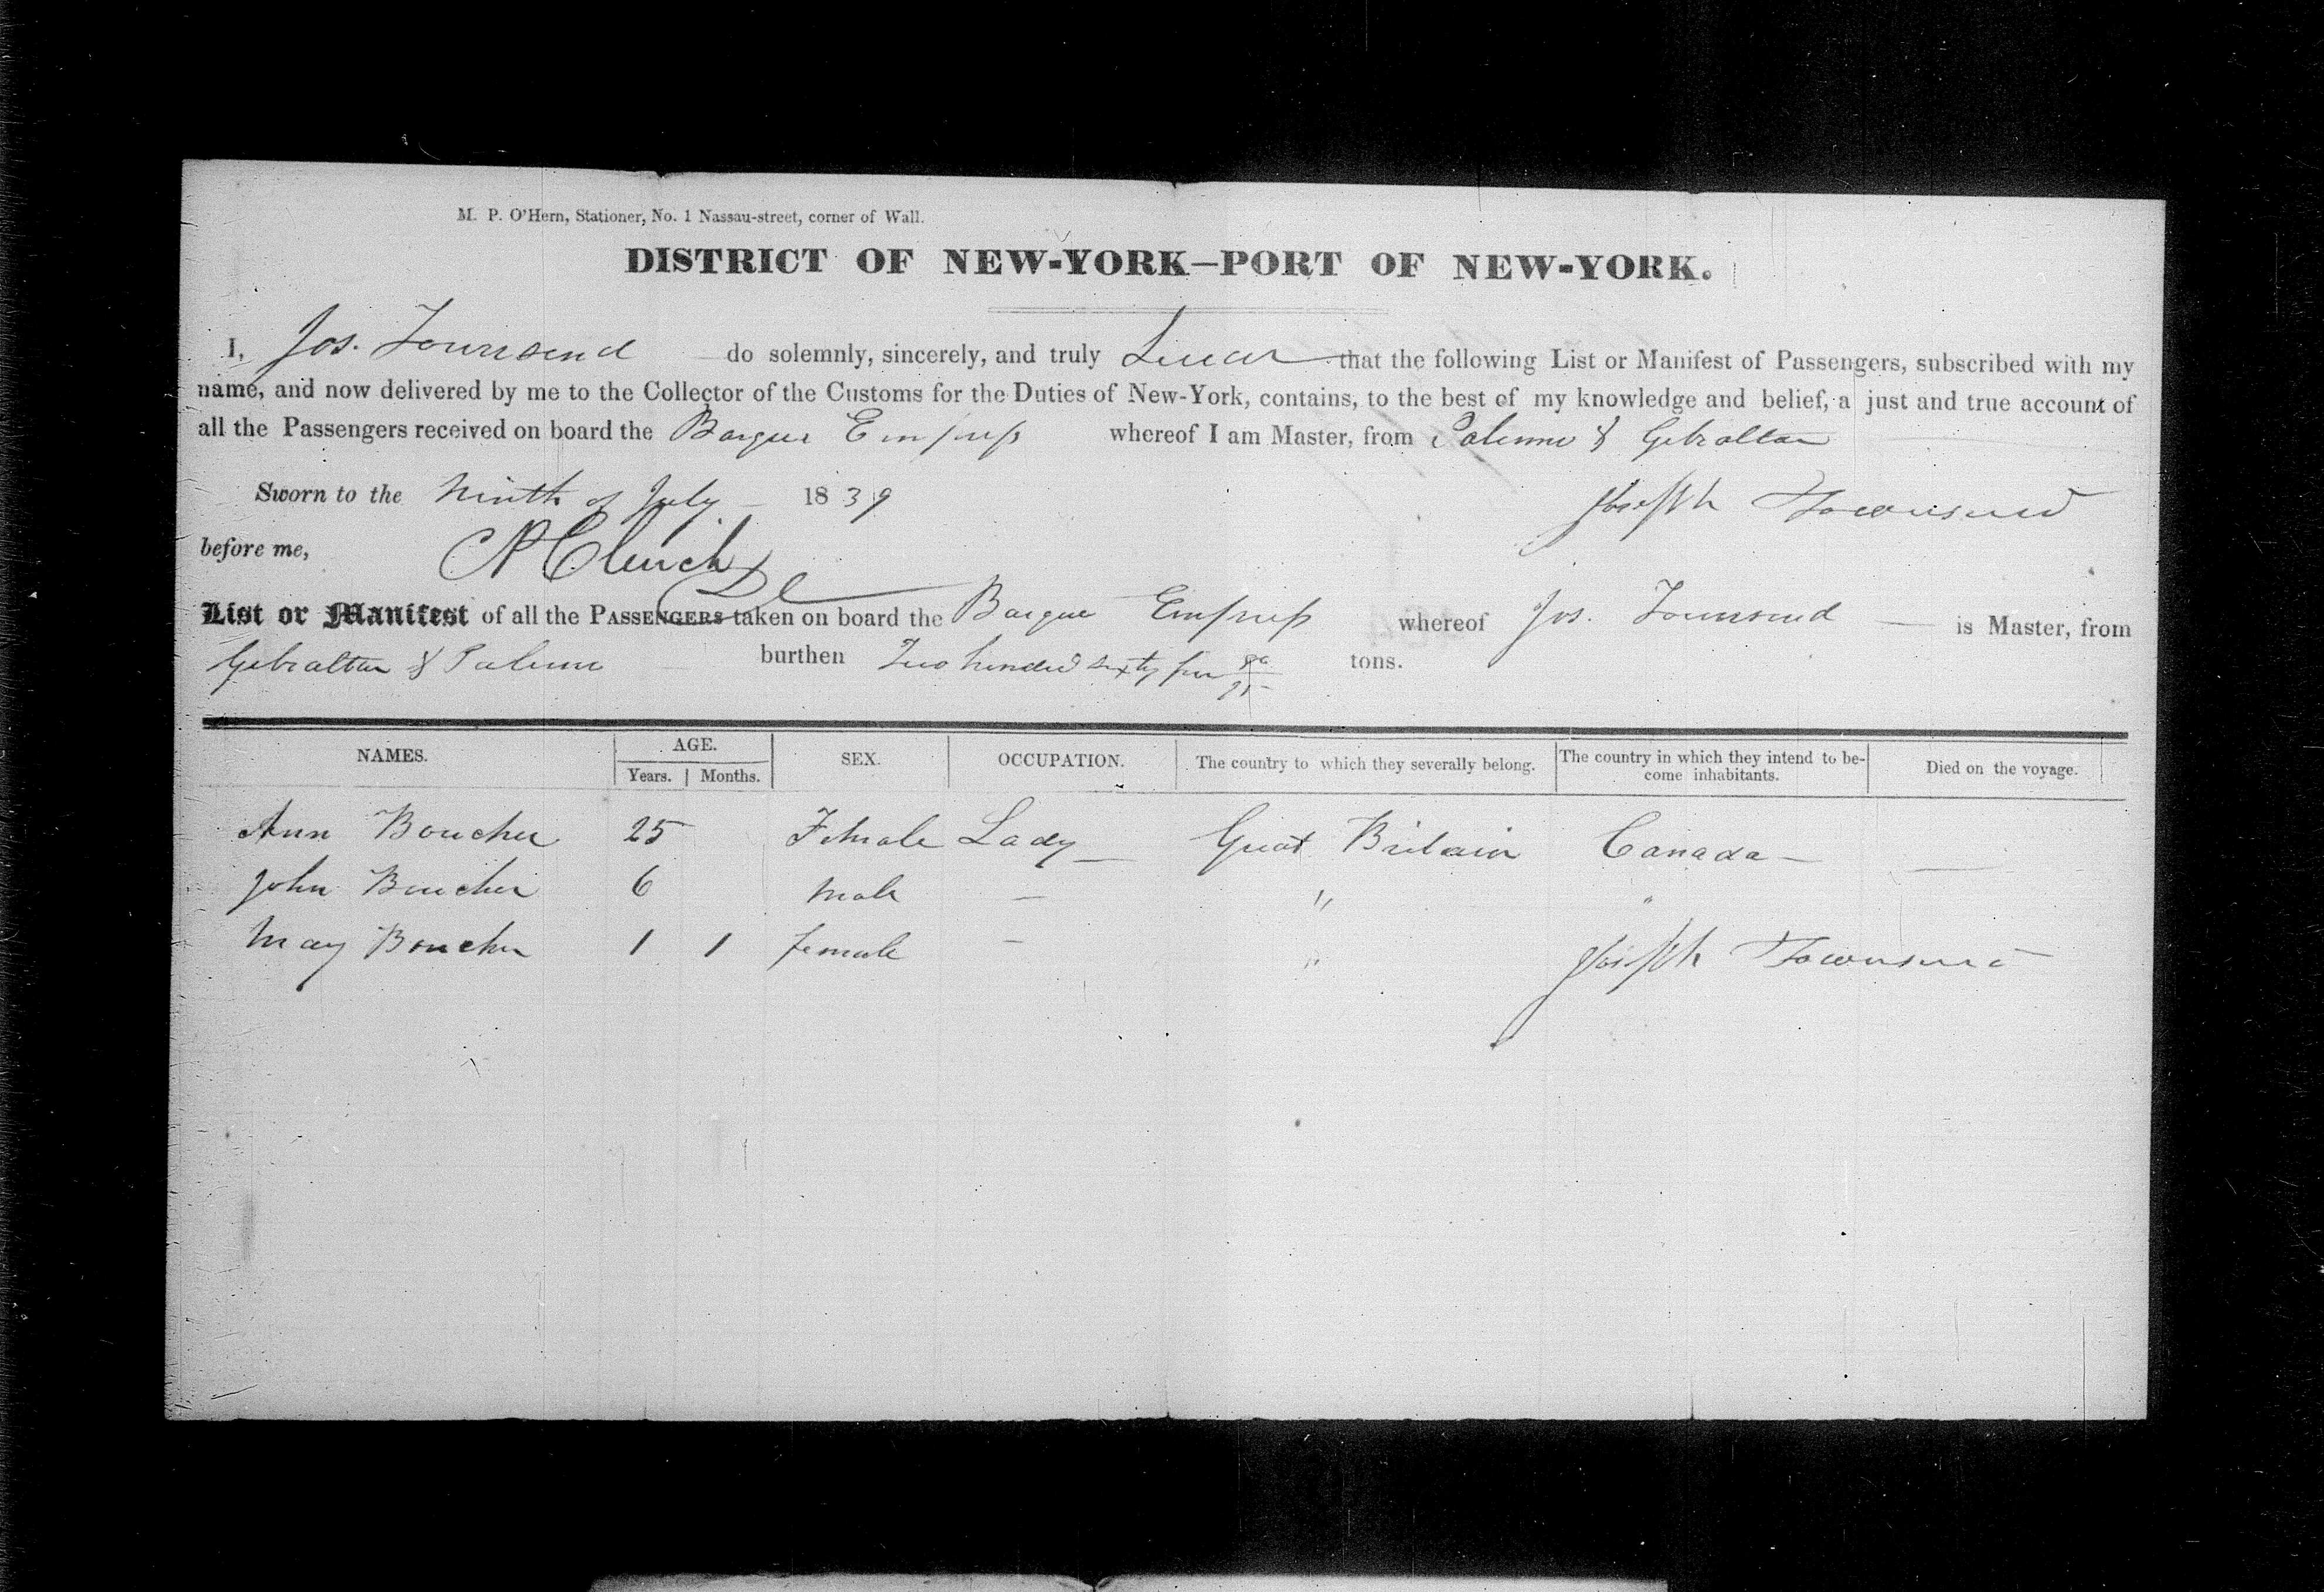 M. P. O'Hern, Stationer, No. 1 Nassau-street, corner of Wall.
DISTRICT OF NEW-YORK—PORT OF NEW-YORK.
I, Jos. Townsend do solemnly, sincerely, and truly Swear that the following List or Manifest of Passengers, subscribed with my
name, and now delivered by me to the Collector of the Customs for the Duties of New-York, contains, to the best of my knowledge and belief, a just and true account of
all the Passengers received on board the Barque Empress whereof I am Master, from Palermo & Gibraltar
Sworn to the Ninth of July 1839 Joseph Townsend
before me, Clinch
List or Manifest of all the PASSENGERS taken on board the Barque Empress whereof Jos. Townsend is Master, from
Gibraltar & Palermo burthen Two hundred sixty tons.
NAMES. AGE. SEX. OCCUPATION. The country to which they severally belong. The country in which they intend to be-
come inhabitants. Died on the voyage.
Years. Months.
Ann Boucher 25 Female Lady Great Britain Canada —
John Boucher 6 Male — " "
Mary Boucher 1 1 female — " Joseph Townsend